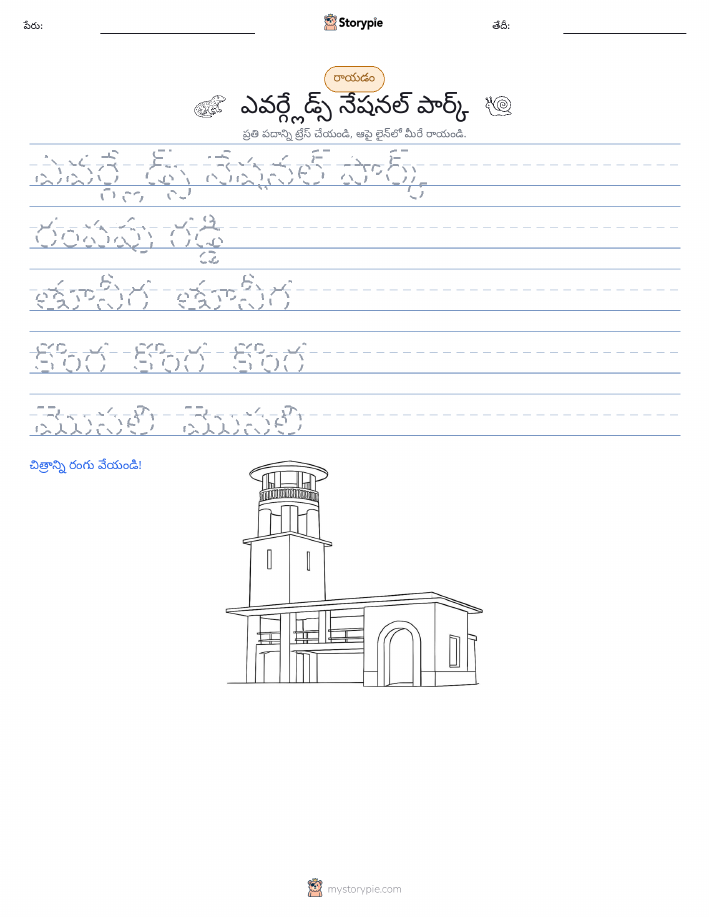 పేరు:
Storypie
తేదీ:
రాయడం
ఎవర్గ్లేడ్స్ నేషనల్ పార్క్
ప్రతి పదాన్ని ట్రేస్ చేయండి, ఆపై లైన్‌లో మీరే రాయండి.
ఎవర్గ్లేడ్స్ నేషనల్ పార్క్
రంపపు గడ్డి
తూనీగ తూనీగ
కొంగ కొంగ కొంగ
మొసలి మొసలి
చిత్రాన్ని రంగు వేయండి!
mystorypie.com